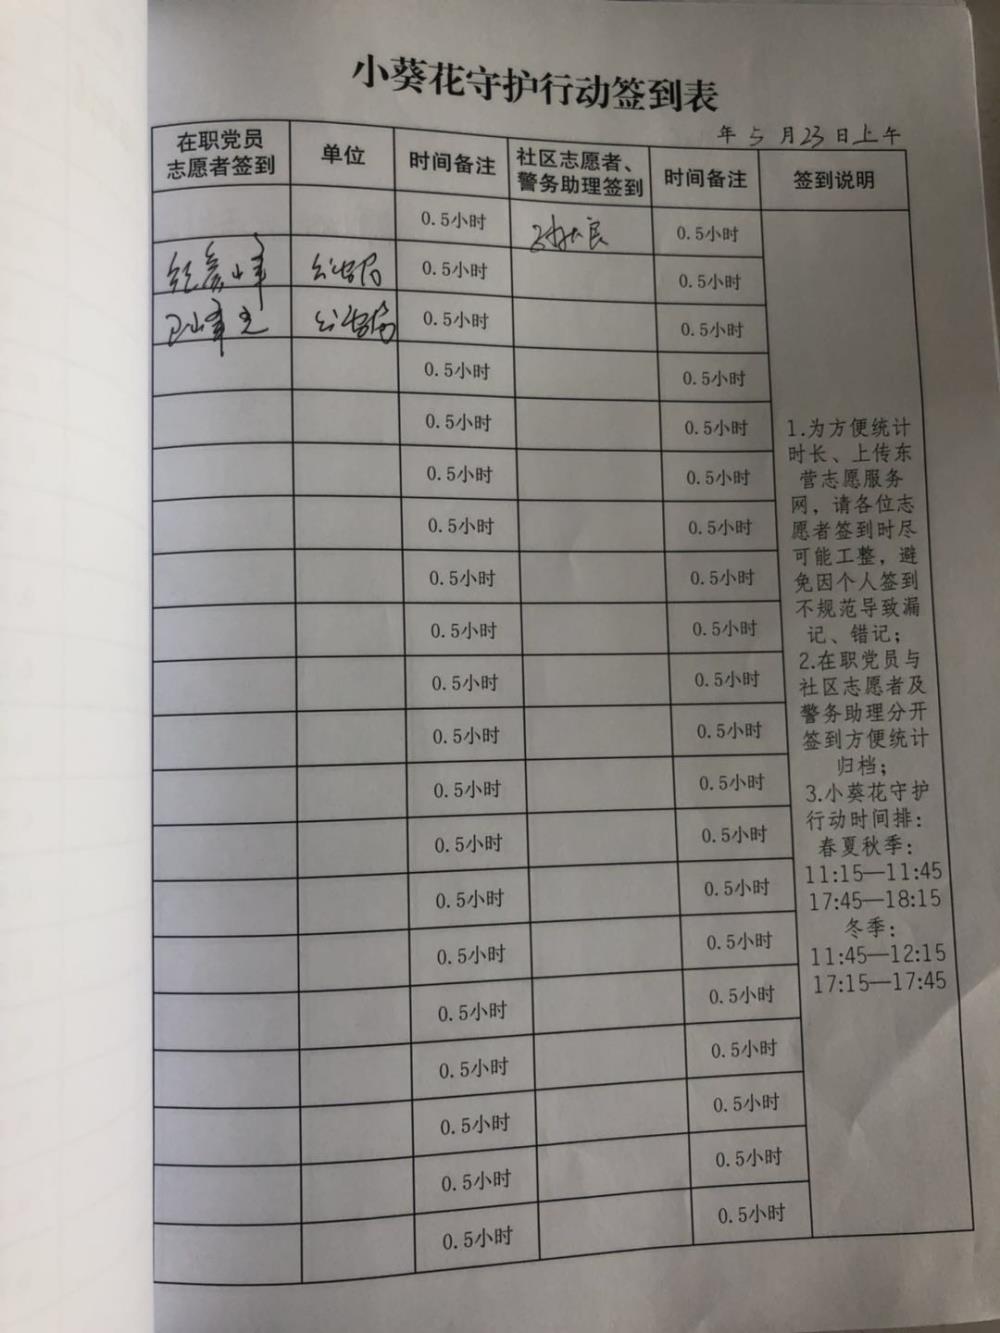 小葵花守护行动签到表
年 5 月 23 日上午
在职党员
志愿者签到
单位
时间备注
社区志愿者、
警务助理签到
时间备注
签到说明
0.5小时 0.5小时
公安局 0.5小时 0.5小时
公安局 0.5小时 0.5小时
0.5小时 0.5小时
0.5小时 0.5小时
0.5小时 0.5小时
0.5小时 0.5小时
0.5小时 0.5小时
0.5小时 0.5小时
0.5小时 0.5小时
0.5小时 0.5小时
0.5小时 0.5小时
0.5小时 0.5小时
0.5小时 0.5小时
0.5小时 0.5小时
0.5小时 0.5小时
0.5小时 0.5小时
0.5小时 0.5小时
0.5小时 0.5小时
0.5小时 0.5小时
1.为方便统计
时长、上传东
营志愿服务
网，请各位志
愿者签到时尽
可能工整，避
免因个人签到
不规范导致漏
记、错记；
2.在职党员与
社区志愿者及
警务助理分开
签到方便统计
归档；
3.小葵花守护
行动时间排：
春夏秋季：
11:15—11:45
17:45—18:15
冬季：
11:45—12:15
17:15—17:45